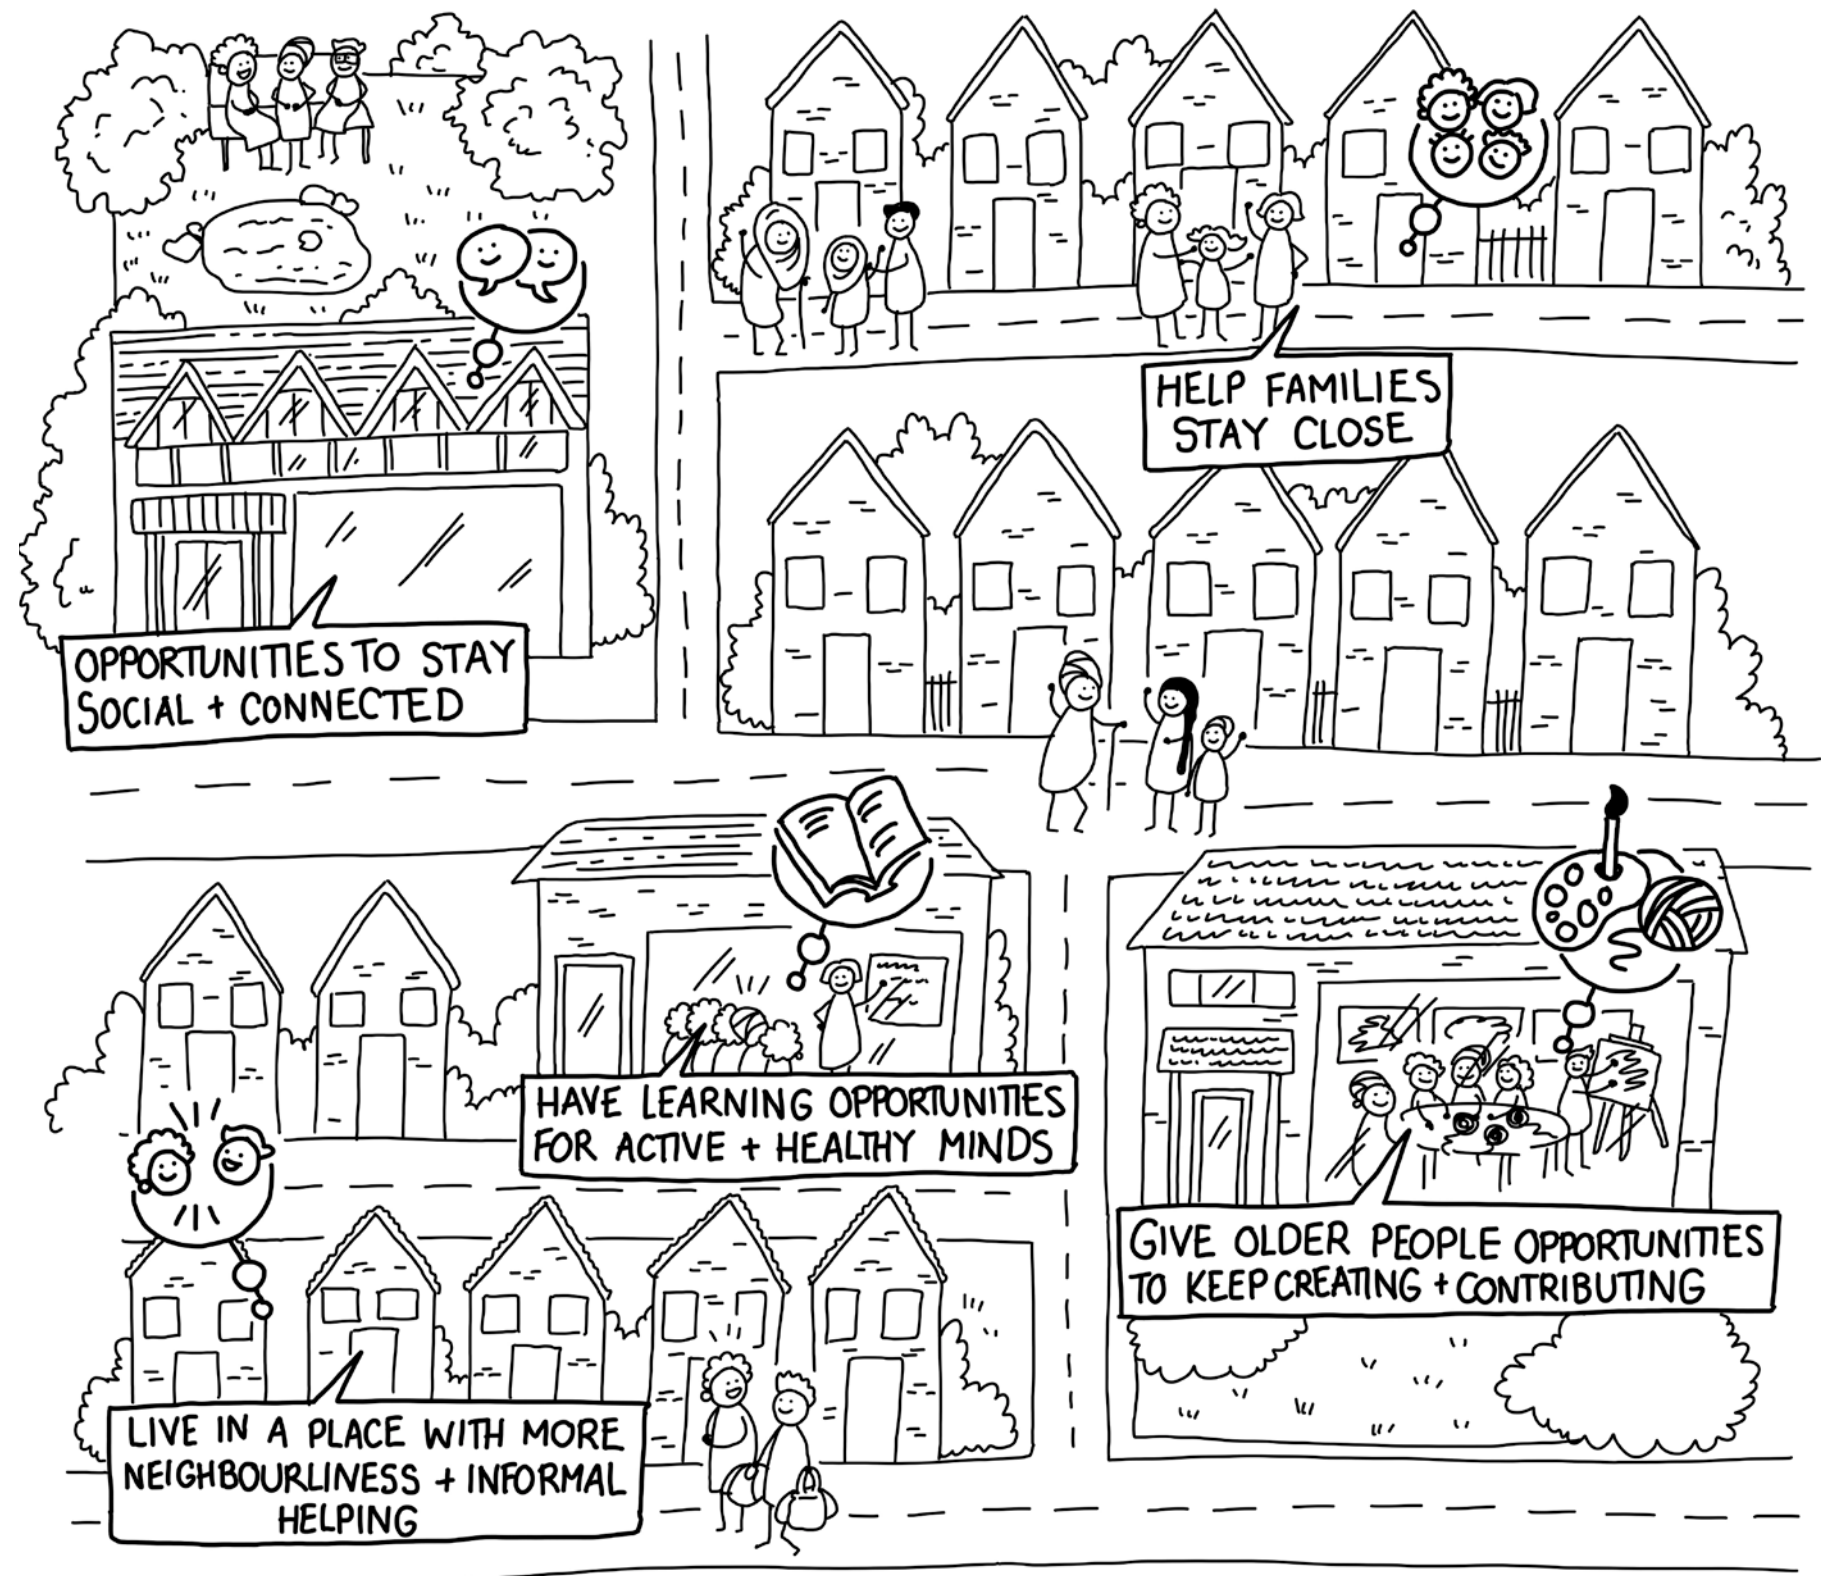 HELP FAMILIES
STAY CLOSE
OPPORTUNITIES TO STAY
SOCIAL + CONNECTED
HAVE LEARNING OPPORTUNITIES
FOR ACTIVE + HEALTHY MINDS
GIVE OLDER PEOPLE OPPORTUNITIES
TO KEEP CREATING + CONTRIBUTING
LIVE IN A PLACE WITH MORE
NEIGHBOURLINESS + INFORMAL
HELPING